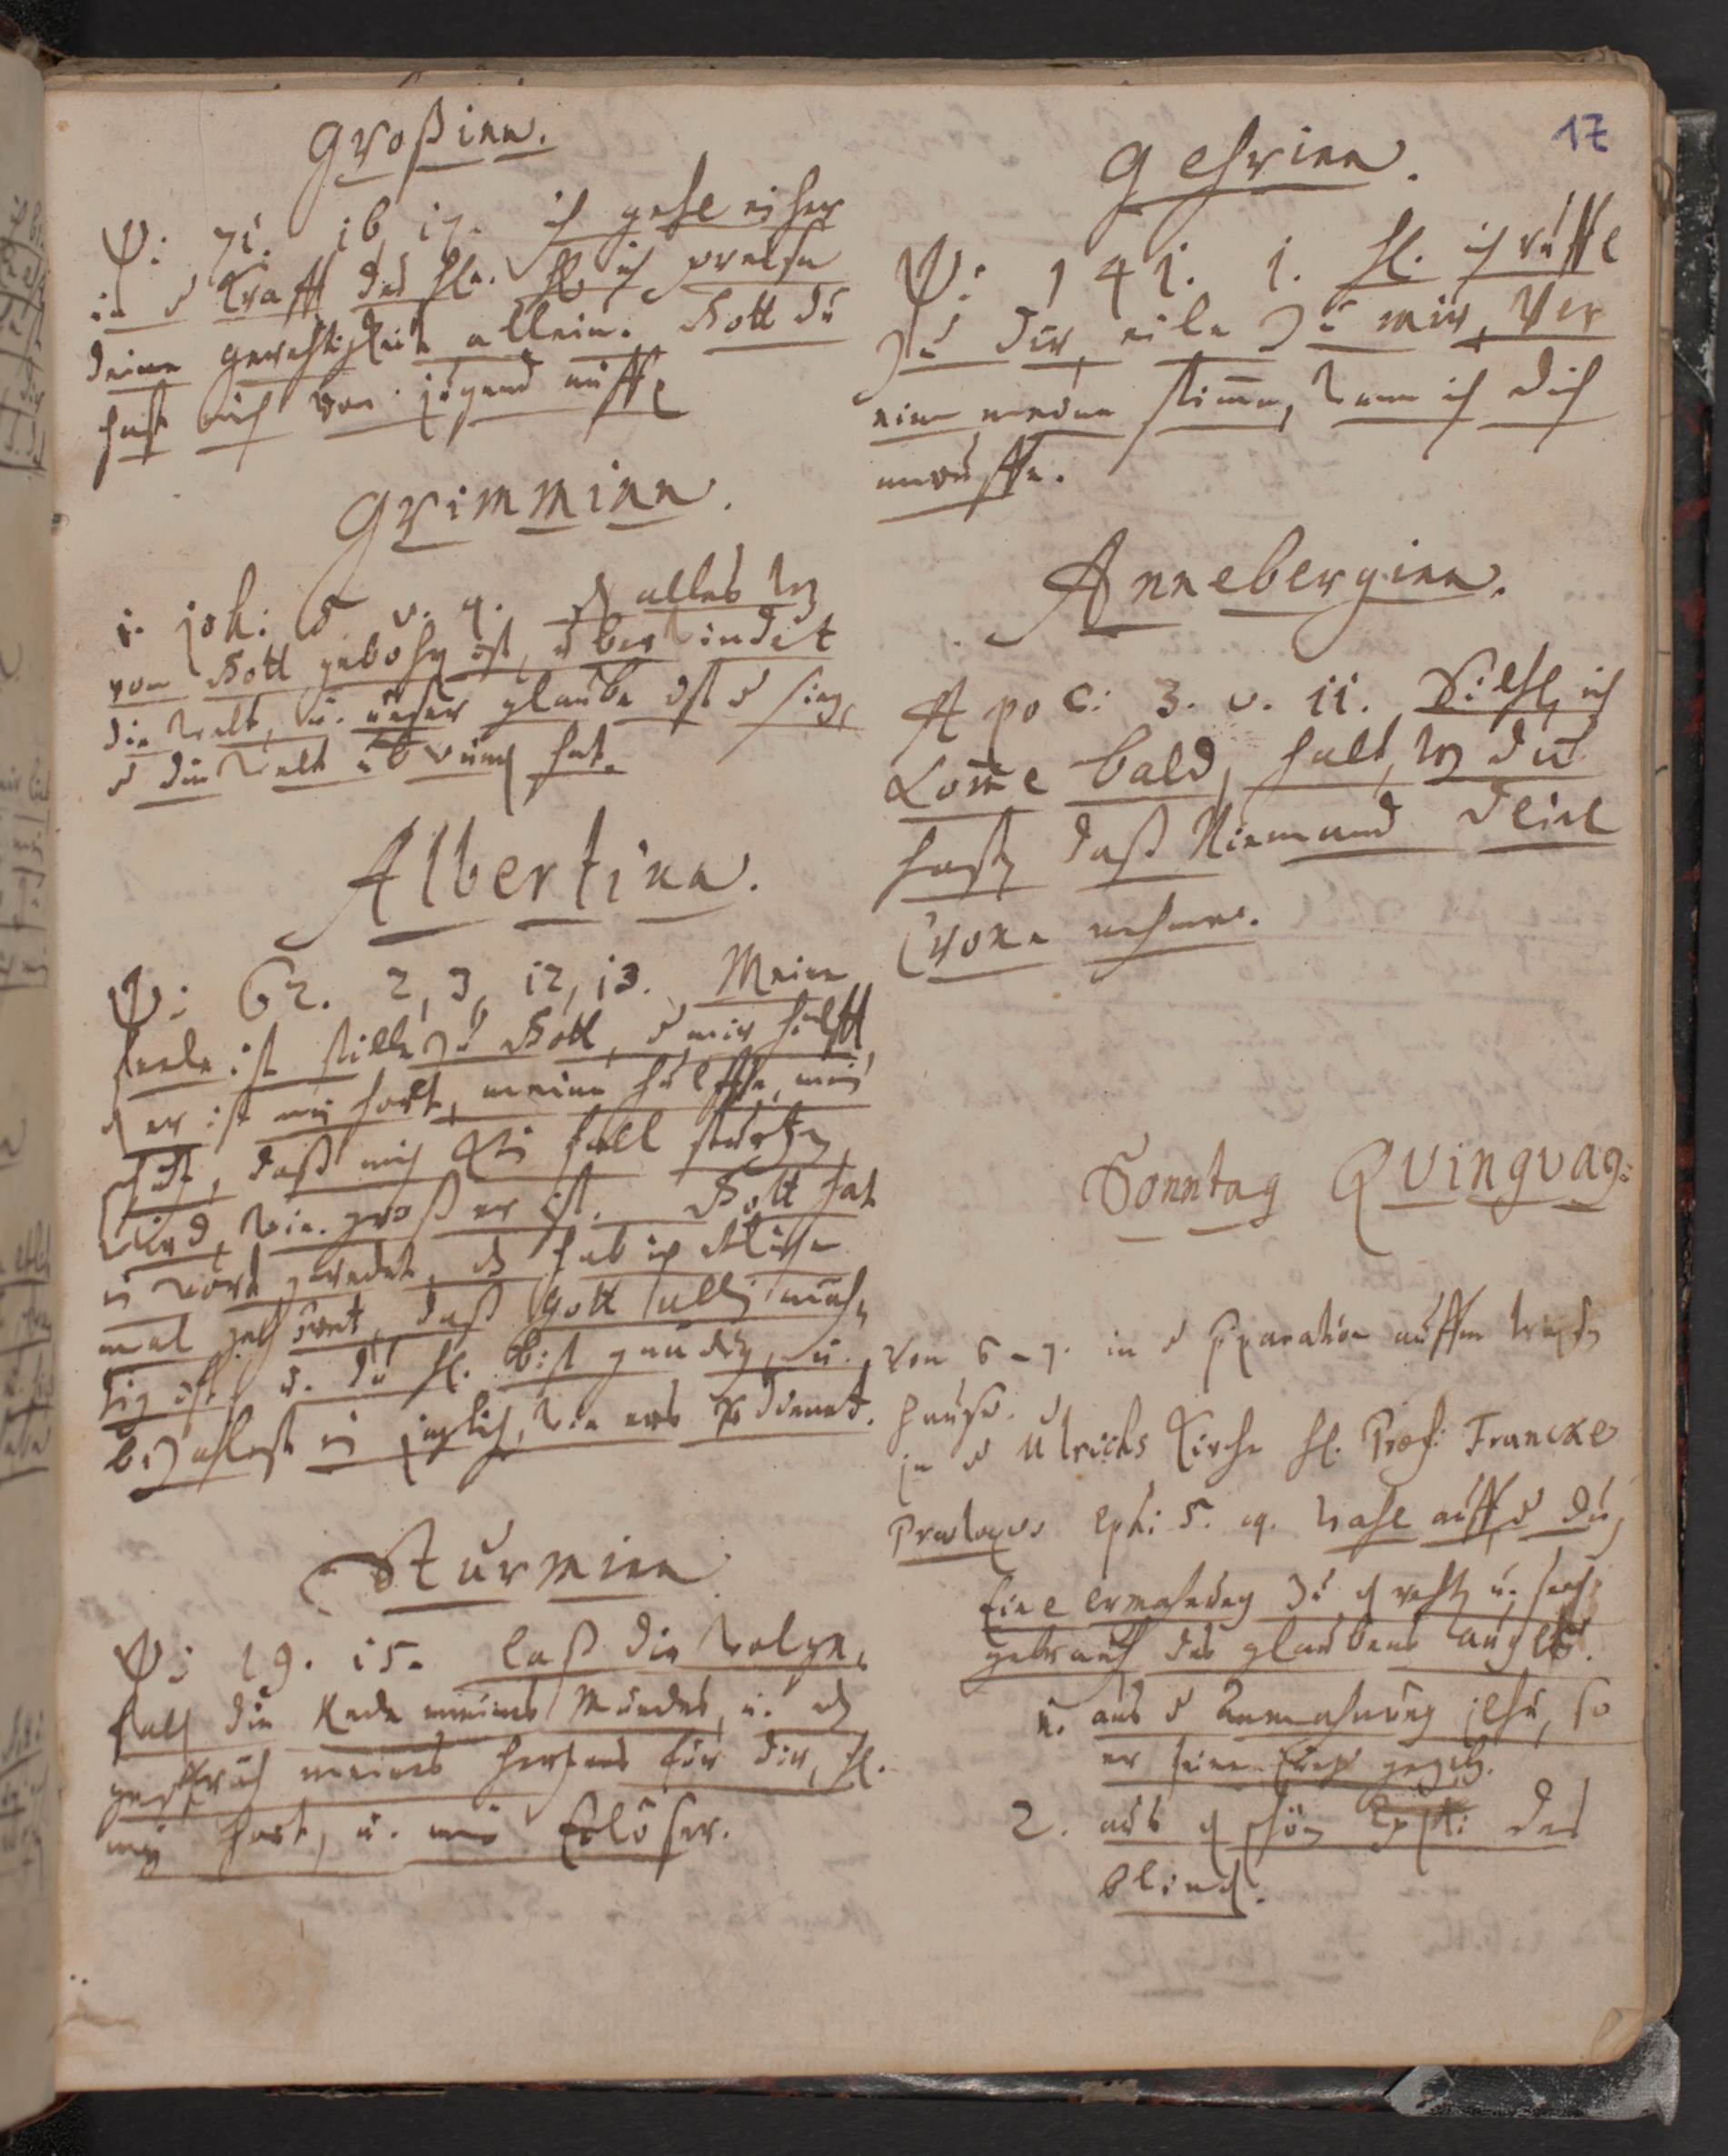 Großinn.
Ψ: 71. 16, 17. ich gehe einher
in d Krafft des hE. hE. ich preise
deine gerechtigkeit allein. Gott du
hast mich von jugend auff
Grimminn.
1. joh: 5 v. 4. alles
von Gott gebohrn ist, überwindet
die Welt, u. unser glaube ist d sieg,
d die Welt hat.
Albertina.
Ψ: 62. 2, 3, 12, 13. Meine
seele ist stille zu Gott, d mir hilfft,
er ist mein hort, meine hülffe, mein
schutz, daß mich kein fall stürtzen
wird, wie groß er ist. Gott hat
ein wort geredet, hab ich etliche
mal gehöret, daß Gott allein mäch
tig ist, u. du hE. bist gnädig, u.
bezahlest ein jeglich, wie ers verdienet.
Sturminn
Ψ: 19. 15. laß dir wolge
fall die Rede meines Mundes, u.
gespräch meines hertzens für dir, hE.
mein hort, u. mein Erlöser.
17
Gehrinn.
Ψ: 141. 1. hE. ich ruffe
zu dir, eile zu mir, Ver
nim meine stim̅e, wenn ich dich
anruffe.
Annebergina.
Apoc: 3. v. 11. Siehe, ich
kom̅e bald, halt, du
hast, daß Niemand deine
Crone nehme.
Sonntag Qvinqvag:
Von 6 - 7. in d auffm
hause.
in d Ulrichs Kirche hE. Prof: Francke
Eph: 5. wache auff, d du,
Eine ermahnung zu recht u.
gebrauch des glaubens
1. aus d Anmahnung jEsu, so
er seinen
2. aus des
blind.